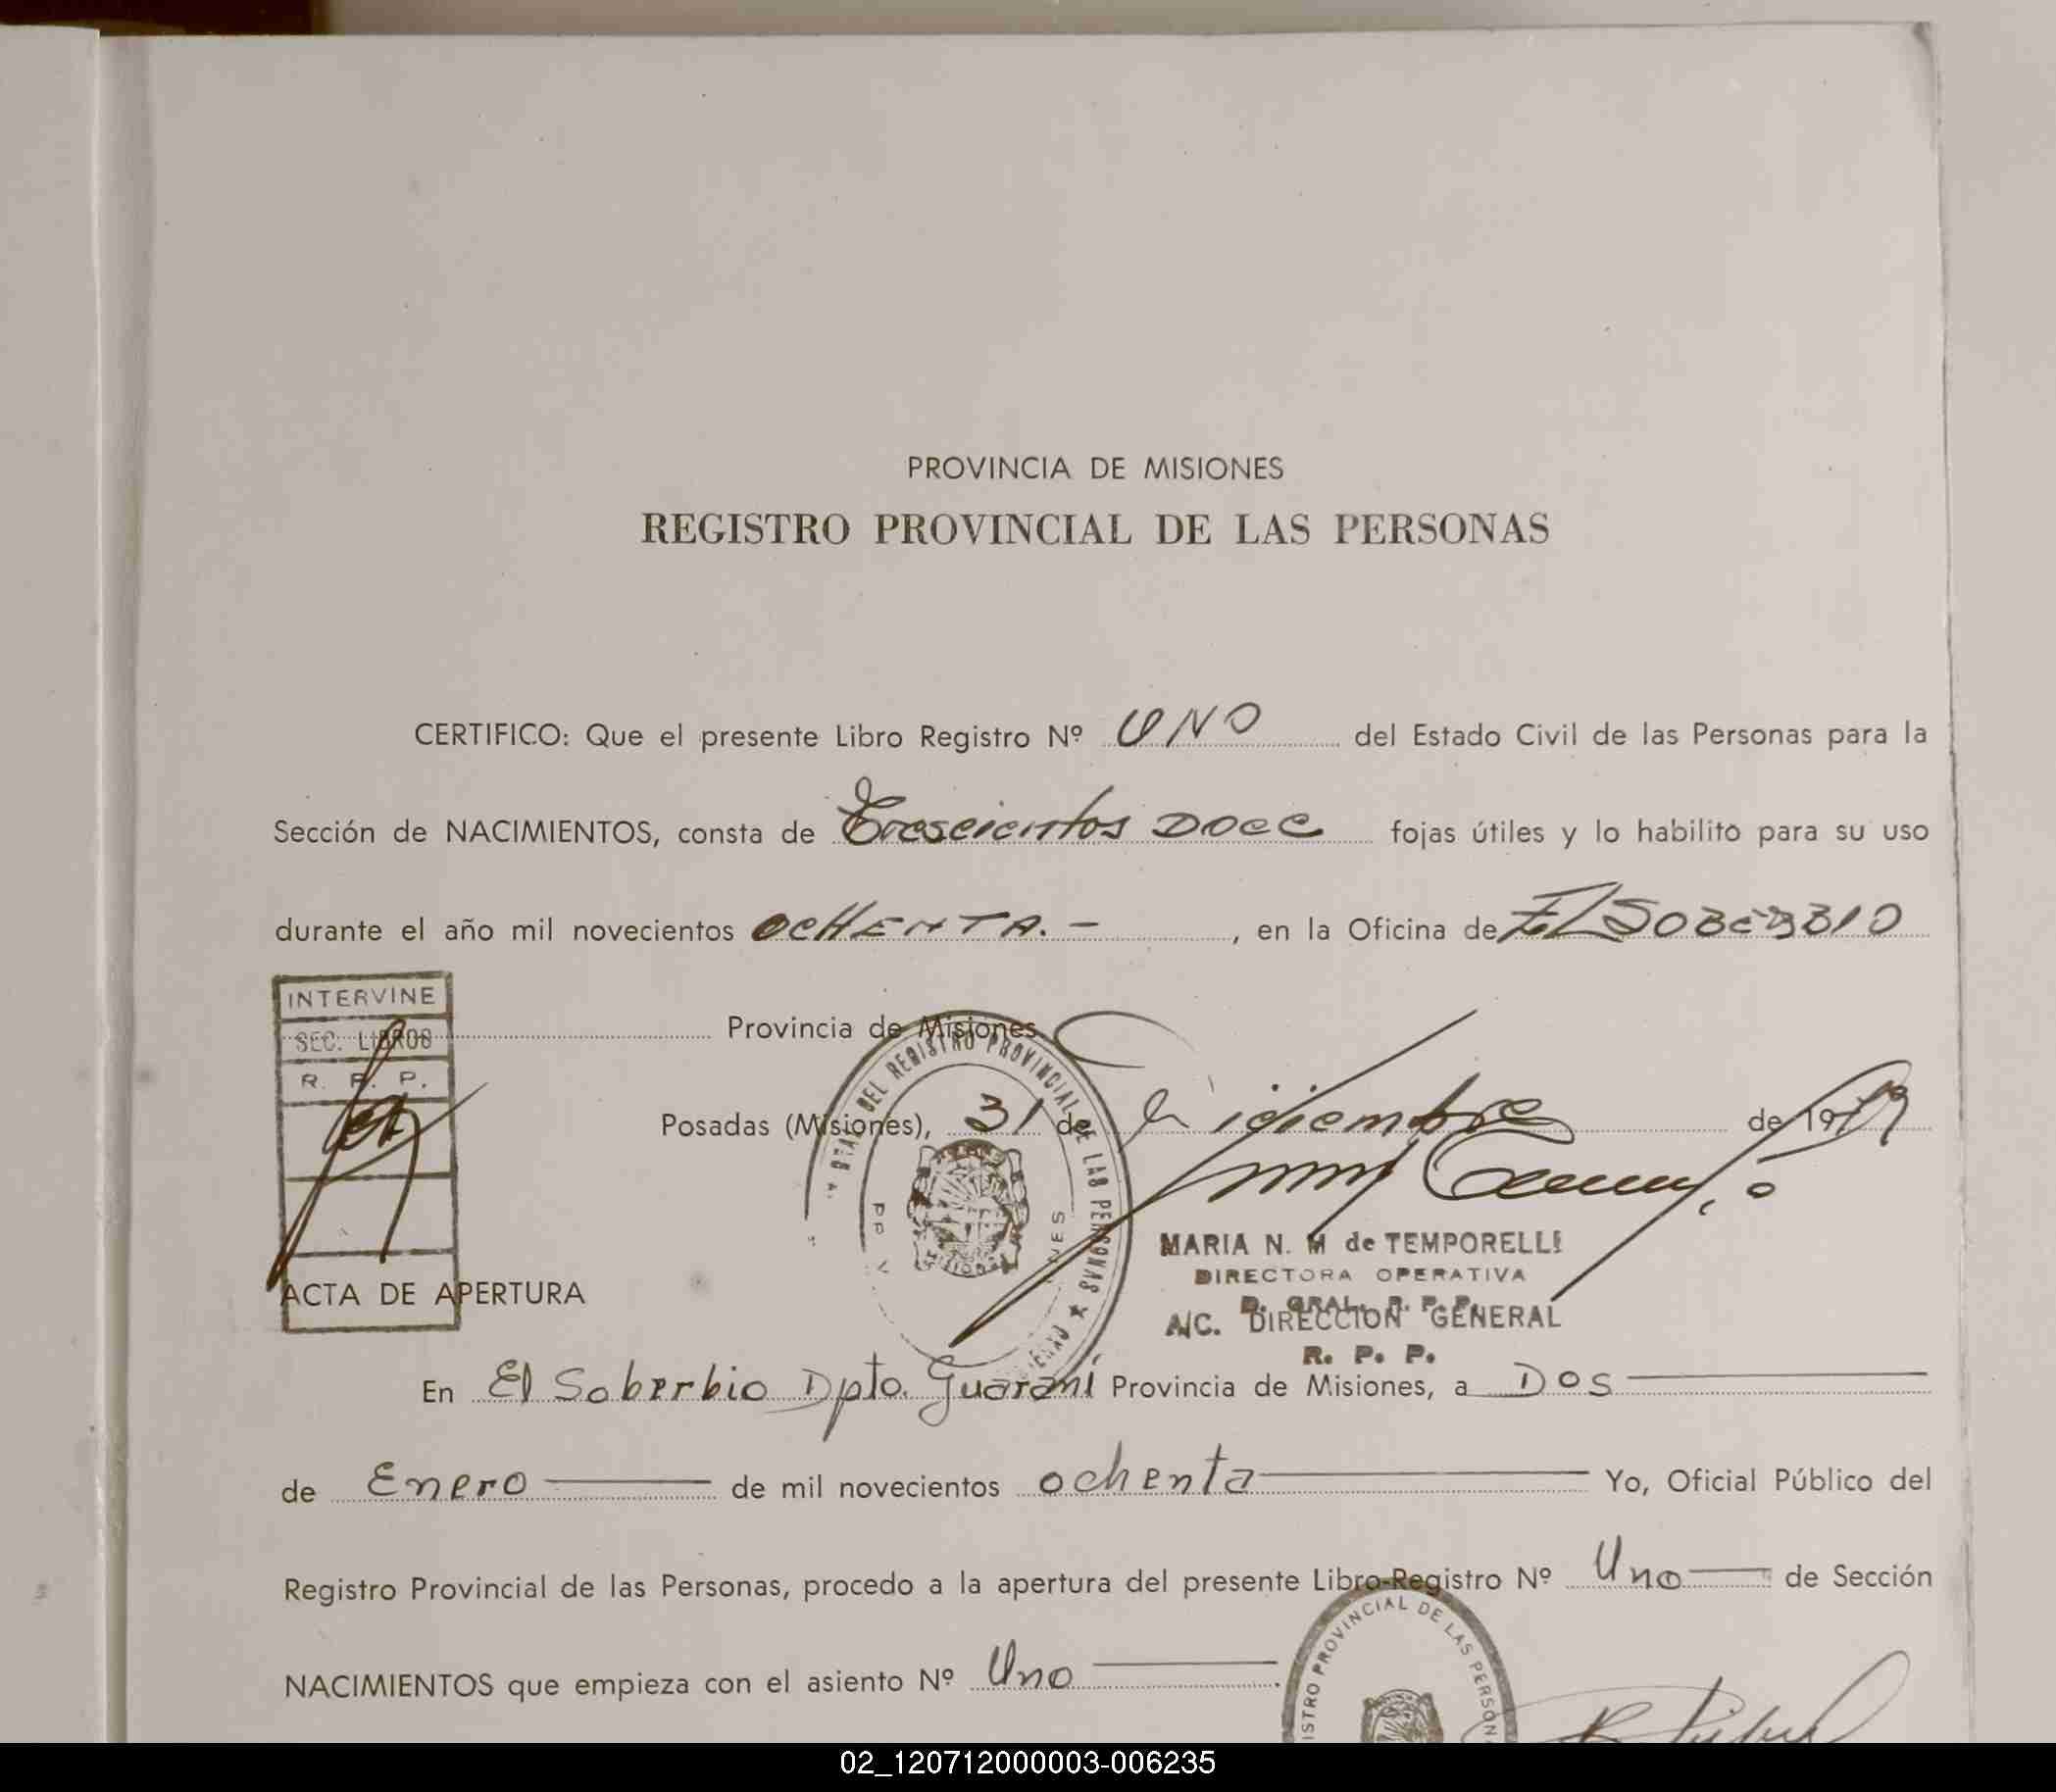 PROVINCIA DE MISIONES
REGISTRO PROVINCIAL DE LAS PERSONAS
CERTIFICO: Que el presente Libro Registro Nº UNO del Estado Civil de las Personas para la
Sección de NACIMIENTOS, consta de Trescientos DOCE fojas útiles y lo habilito para su uso
durante el año mil novecientos OCHENTA.- , en la Oficina de EL SOBERBIO
INTERVINE
SEC. LIBROS
R. P. P.
Provincia de Misiones
Posadas (Misiones), 31 de Diciembre de 1979
DEL REGISTRO PROVINCIAL DE LAS PERSONAS
MARIA N. M de TEMPORELLI
DIRECTORA OPERATIVA
D. GRAL. R. P. P.
A/C. DIRECCION GENERAL
R. P. P.
ACTA DE APERTURA
En El Soberbio Dpto. Guaraní Provincia de Misiones, a Dos
de Enero de mil novecientos ochenta Yo, Oficial Público del
Registro Provincial de las Personas, procedo a la apertura del presente Libro-Registro Nº Uno de Sección
NACIMIENTOS que empieza con el asiento Nº Uno .
ISTRO PROVINCIAL DE LAS PERSON
02_120712000003-006235